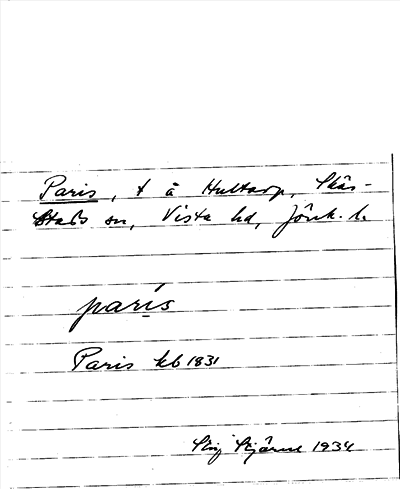 Paris, t å Hultarp, Skär-
stads sn, Vista hd, Jönk. l.
parịs
Paris kb 1831
Stig Stjärne 1934